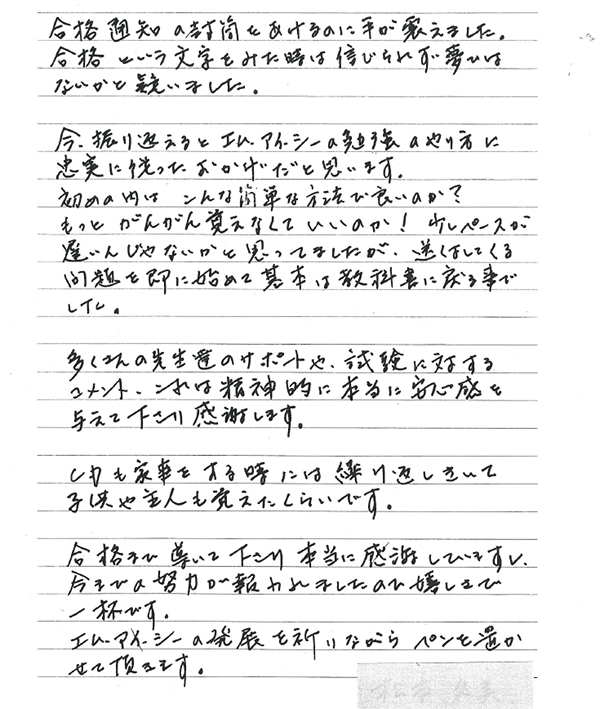 合格通知の封筒をあけるのに手が震えました。
合格という文字をみた時は信じられず夢では
ないかと疑いました。
今、振り返えるとエム・アイ・シーの勉強のやり方に
忠実に従ったおかげだと思います。
初めの内は こんな簡単な方法で良いのか?
もっと がんがん覚えなくていいのか! 少しペースが
遅いんじゃないかと思ってましたが、送くしてくる
問題を即に始めて基本は教科書に戻る事で
した。
多くさんの先生達のサポートや、試験に対する
コメント、これは精神的に本当に安心感を
与えて下さり感謝します。
しかも家事をする時には繰り返しきいて
子供や主人も覚えたくらいです。
合格まで導いて下さり本当に感謝していますし、
今までの努力が報われましたので嬉しさで
一杯です。
エム・アイ・シーの発展を祈りながら ペンを置か
せて頂きます。